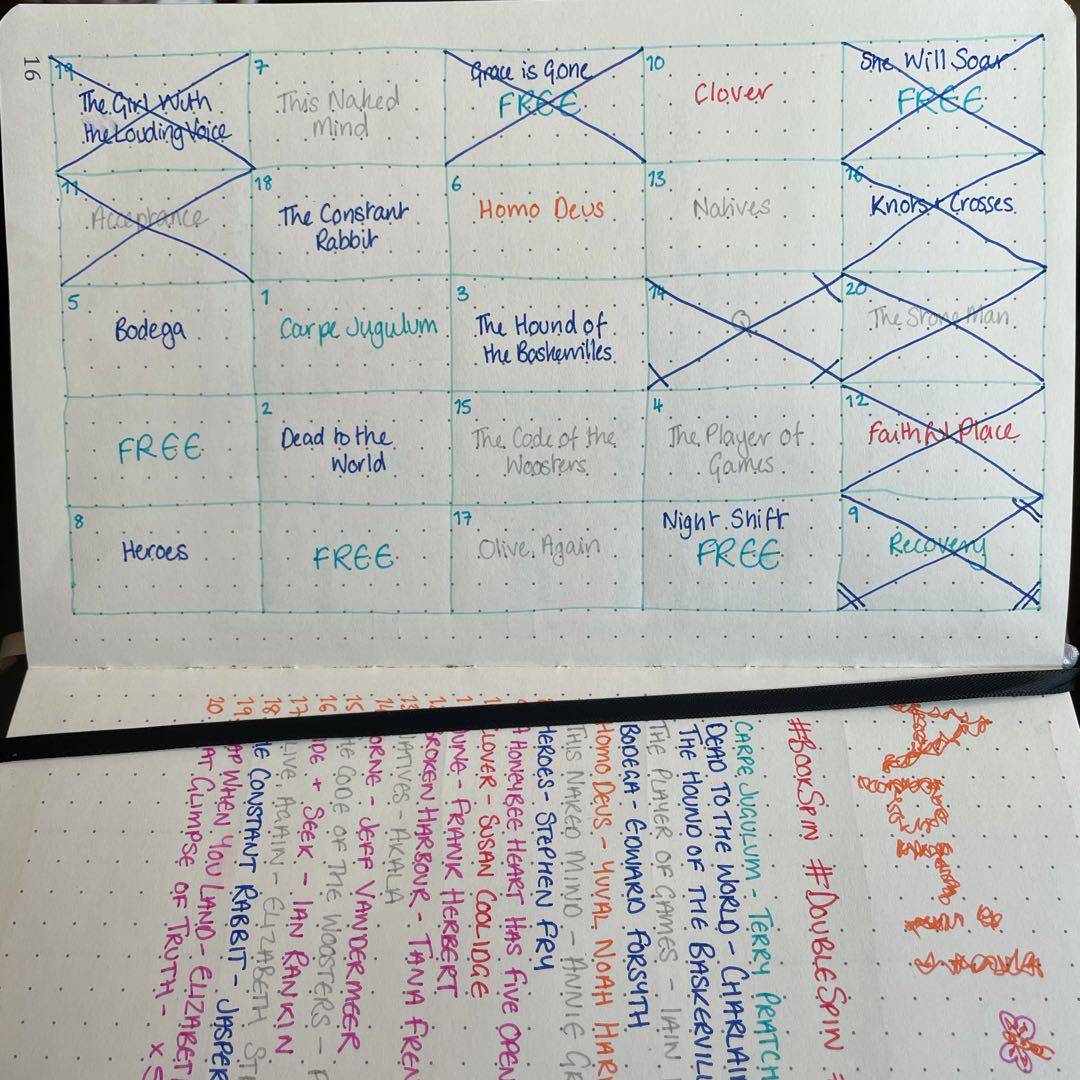 16
19
The Girl With
the Louding Voice
7
This Naked
Mind
Grace is Gone
FREE
10
Clover
She Will Soar
FREE
11
Acceptance
18
The Constant
Rabbit
6
Homo Deus
13
Natives
16
Knots + Crosses
5
Bodega
1
Carpe Jugulum
3
The Hound of
the Baskervilles
14
20
The Stone Man
FREE
2
Dead to the
World
15
The Code of the
Woosters
4
The Player of
Games
12
Faithful Place
8
Heroes
FREE
17
Olive, Again
Night Shift
FREE
9
Recovery
#BookSpin #DoubleSpin
CARPE JUGULUM - TERRY PRATCH
DEAD TO THE WORLD - CHARLAI
THE HOUND OF THE BASKERVILL
THE PLAYER OF GAMES - IAIN
BODEGA - EDWARD FORSYTH
HOMO DEUS - YUVAL NOAH HAR
THIS NAKED MIND - ANNIE GR
HEROES - STEPHEN FRY
A HONEYBEE HEART HAS FIVE OPEN
CLOVER - SUSAN COOLIDGE
DUNE - FRANK HERBERT
BROKEN HARBOUR - TANA FREN
NATIVES - AKALA
ORNE - JEFF VANDERMEER
15 THE CODE OF THE WOOSTERS -
16 IDE + SEEK - IAN RANKIN
17 LIVE, AGAIN - ELIZABETH ST
18 HE CONSTANT RABBIT - JASPER
19 AP WHEN YOU LAND - ELIZABET
20 AT GLIMPSE OF TRUTH -